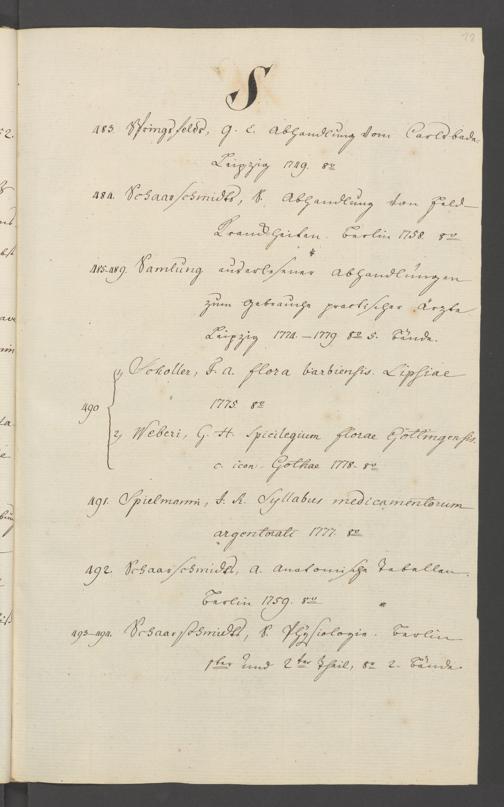 S
483. Springsfelds, G. C. Abhandlung vom Carlsbade
Leipzig 1749. 8º
484. Schaarschmidts, S. Abhandlung von Feld-
Krankheiten. Berlin 1758. 8º
485-489. Samlung auserlesener Abhandlungen
zum Gebrauche practischer Ärzte
Leipzig 1774.-1779 8º 5. Bände.
490 1, Scholler, F. A. flora barbiensis. Lipsiae
1775. 8º
2, Weberi, G. H. Spicilegium florae Gottingensis.
c. icon. Gothae 1778. 8º
491. Spielmann, J. R. Syllabus medicamentorum
argentorati 1777. 8º
492. Schaarschmidts, A. Anatomische Tabellen.
Berlin 1759. 8º
493-494. Schaarschmidts, S. Physiologie. Berlin
1ter und 2ter Theil, 8º 2. Bände.